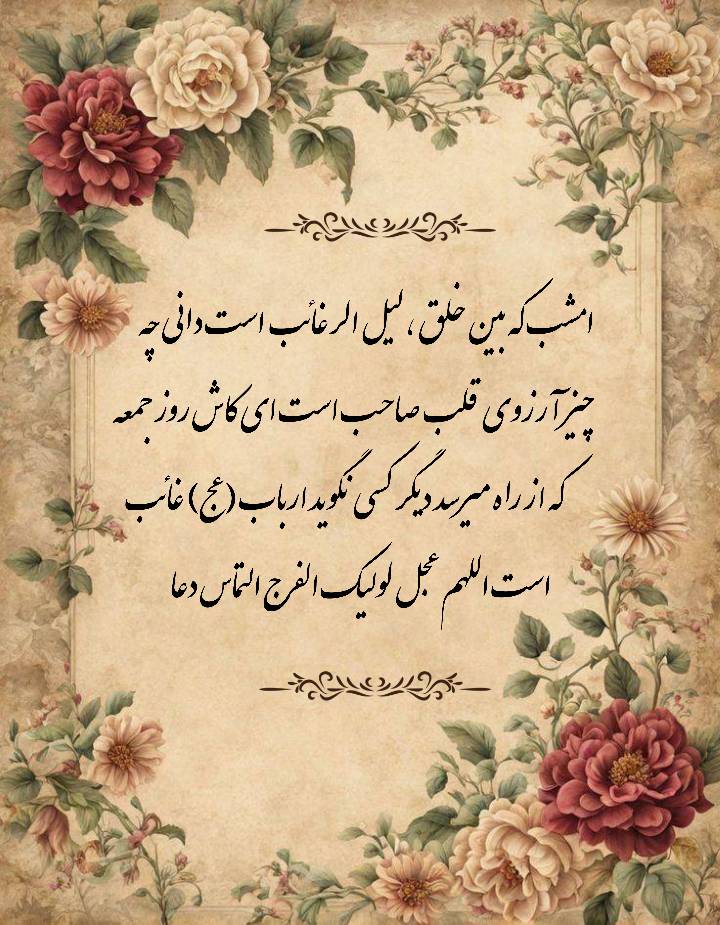 امشب که بین خلق ، لیل الرغائب است دانی چه
چیز آرزوی قلب صاحب است ای کاش روز جمعه
که از راه میرسد دیگر کسی نگوید ارباب (عج) غائب
است اللهم عجل لولیک الفرج التماس دعا